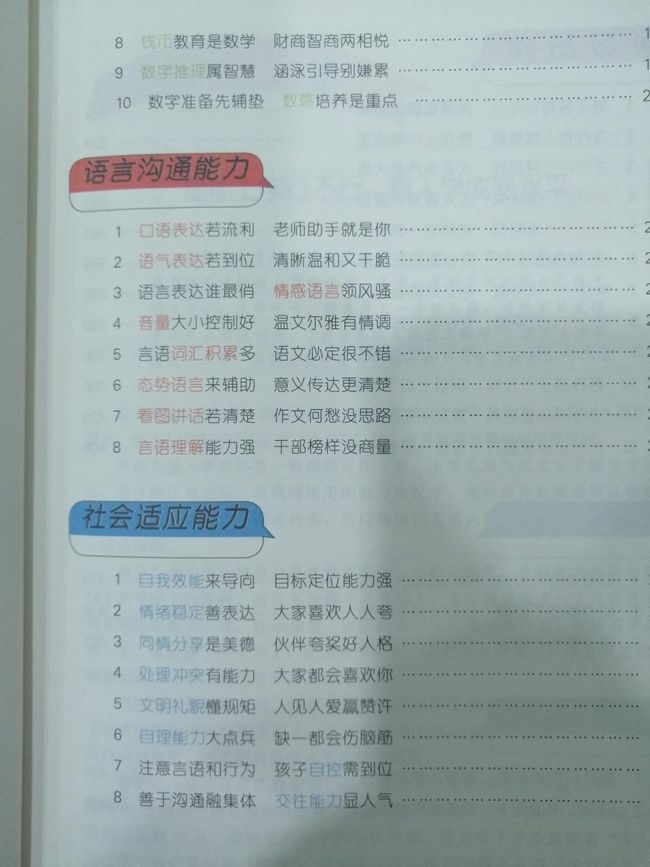 8 钱币教育是数学 财商智商两相悦 …………………………… 1
9 数字推理属智慧 涵泳引导别嫌累 …………………………… 1
10 数字准备先辅垫 数感培养是重点 ………………………… 2
语言沟通能力
1 口语表达若流利 老师助手就是你 …………………………… 2
2 语气表达若到位 清晰温和又干脆 …………………………… 2
3 语言表达谁最俏 情感语言领风骚 …………………………… 2
4 音量大小控制好 温文尔雅有情调 …………………………… 2
5 言语词汇积累多 语文必定很不错 …………………………… 2
6 态势语言来辅助 意义传达更清楚 …………………………… 2
7 看图讲话若清楚 作文何愁没思路 …………………………… 2
8 言语理解能力强 干部榜样没商量 ……………………………
社会适应能力
1 自我效能来导向 目标定位能力强 ……………………………
2 情绪稳定善表达 大家喜欢人人夸 ……………………………
3 同情分享是美德 伙伴夸奖好人格 ……………………………
4 处理冲突有能力 大家都会喜欢你 ……………………………
5 文明礼貌懂规矩 人见人爱赢赞许 ……………………………
6 自理能力大点兵 缺一都会伤脑筋 ……………………………
7 注意言语和行为 孩子自控需到位 ……………………………
8 善于沟通融集体 交往能力显人气 ……………………………